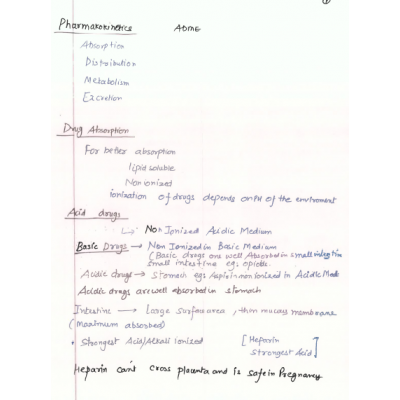 Pharmakokinetics ADME
Absorption
Distribution
Metabolism
Excretion
Drug Absorption
For better absorption
lipid soluble
Non ionized
ionization of drugs depends on PH of the enviroment
Acid drugs
Non Ionized Acidic Medium
Basic Drugs → Non Ionized in Basic Medium
(Basic drugs are well Absorbed in small intestine
small intestine eg: opioids.
Acidic drugs → stomach egs Aspirin non ionized in Acidic Medi
Acidic drugs are well absorbed in stomach
Intestine → Large surface area, thin mucous membrane
(maximum absorbed)
• Strongest Acid/Alkali Ionized [Heparin
strongest Acid]
Heparin can't cross placenta and is safe in Pregnancy